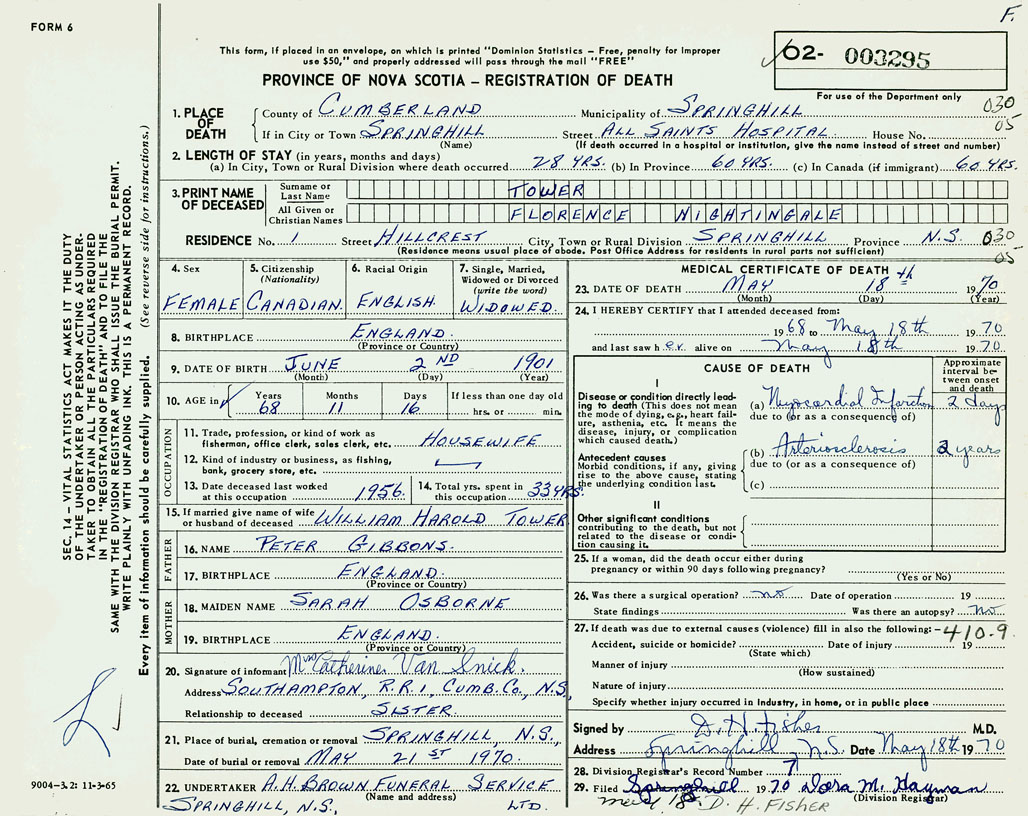 F.
FORM 6
This form, if placed in an envelope, on which is printed "Dominion Statistics – Free, penalty for improper
use $50," and properly addressed will pass through the mail "FREE"
O2- 003295
PROVINCE OF NOVA SCOTIA – REGISTRATION OF DEATH
For use of the Department only
1. PLACE OF DEATH County of CUMBERLAND Municipality of SPRINGHILL 030
If in City or Town SPRINGHILL Street ALL SAINTS HOSPITAL House No. 05
(Name) (If death occurred in a hospital or institution, give the name instead of street and number)
2. LENGTH OF STAY (in years, months and days)
(a) In City, Town or Rural Division where death occurred 28 YRS. (b) In Province 60 YRS. (c) In Canada (if immigrant) 60 YRS.
3. PRINT NAME OF DECEASED Surname or Last Name TOWER
All Given or Christian Names FLORENCE NIGHTINGALE
RESIDENCE No. 1 Street HILLCREST City, Town or Rural Division SPRINGHILL Province N.S. 030
(Residence means usual place of abode. Post Office Address for residents in rural parts not sufficient) 05
4. Sex FEMALE
5. Citizenship (Nationality) CANADIAN.
6. Racial Origin ENGLISH.
7. Single, Married, Widowed or Divorced (write the word) WIDOWED.
8. BIRTHPLACE ENGLAND.
(Province or Country)
9. DATE OF BIRTH JUNE 2ND 1901
(Month) (Day) (Year)
10. AGE in Years 68 Months 11 Days 16. If less than one day old
hrs. or min.
OCCUPATION
11. Trade, profession, or kind of work as
fisherman, office clerk, sales clerk, etc. HOUSEWIFE
12. Kind of industry or business, as fishing,
bank, grocery store, etc.
13. Date deceased last worked
at this occupation 1956.
14. Total yrs. spent in
this occupation 33 YRS.
15. If married give name of wife
or husband of deceased WILLIAM HAROLD TOWER
FATHER
16. NAME PETER GIBBONS.
17. BIRTHPLACE ENGLAND.
(Province or Country)
MOTHER
18. MAIDEN NAME SARAH OSBORNE
19. BIRTHPLACE ENGLAND.
(Province or Country)
20. Signature of informant Mrs Catherine Van Snick.
Address SOUTHAMPTON, R.R.1, CUMB.CO., N.S.
Relationship to deceased SISTER.
21. Place of burial, cremation or removal SPRINGHILL, N.S.,
Date of burial or removal MAY 21ST 1970.
22. UNDERTAKER A.H. BROWN FUNERAL SERVICE
(Name and address)
SPRINGHILL, N.S. LTD.
MEDICAL CERTIFICATE OF DEATH
23. DATE OF DEATH MAY 18th 1970
(Month) (Day) (Year)
24. I HEREBY CERTIFY that I attended deceased from:
1968 to May 18th 1970
and last saw her alive on May 18th 1970
CAUSE OF DEATH
Approximate interval between onset and death
I
Disease or condition directly leading to death (This does not mean the mode of dying, e.g., heart failure, asthenia, etc. It means the disease, injury, or complication which caused death.)
(a) Myocardial Infarction 2 days
due to (or as a consequence of)
Antecedent causes
Morbid conditions, if any, giving rise to the above cause, stating the underlying condition last.
(b) Arteriosclerosis 2 years
due to (or as a consequence of)
(c)
II
Other significant conditions
contributing to the death, but not related to the disease or condition causing it.
25. If a woman, did the death occur either during
pregnancy or within 90 days following pregnancy?
(Yes or No)
26. Was there a surgical operation? no Date of operation 19
State findings Was there an autopsy? No
27. If death was due to external causes (violence) fill in also the following: - 410.9
Accident, suicide or homicide? Date of injury 19
(State which)
Manner of injury
(How sustained)
Nature of injury
Specify whether injury occurred in industry, in home, or in public place
Signed by D. H. Fisher M.D.
Address Springhill, N.S. Date May 18th 1970
28. Division Registrar's Record Number 7
29. Filed 1970 Dora M. Hayman
(Division Registrar)
May 18 D. H. FISHER
SEC. 14 – VITAL STATISTICS ACT MAKES IT THE DUTY
OF THE UNDERTAKER OR PERSON ACTING AS UNDER-
TAKER TO OBTAIN ALL THE PARTICULARS REQUIRED
IN THE "REGISTRATION OF DEATH" AND TO FILE THE
SAME WITH THE DIVISION REGISTRAR WHO SHALL ISSUE THE BURIAL PERMIT.
WRITE PLAINLY WITH UNFADING INK. THIS IS A PERMANENT RECORD.
Every item of information should be carefully supplied. (See reverse side for instructions.)
9004-3.2: 11-3-65